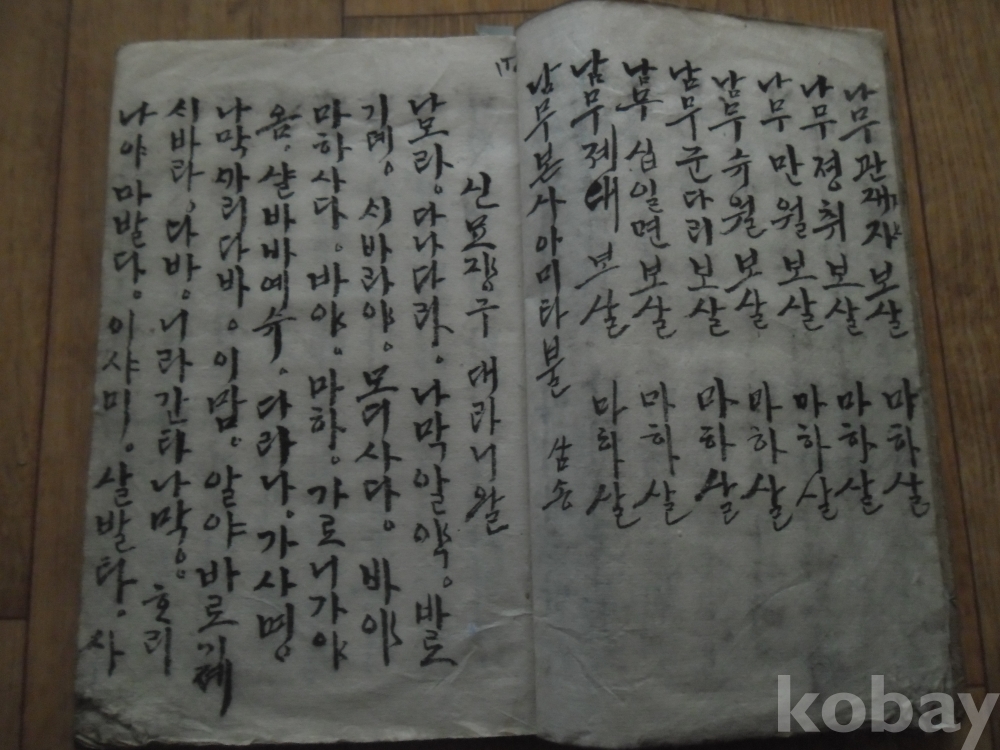 나무관재자보살 마하살
나무졍취보살 마하살
나무만월보살 마하살
남무슈월보살 마하살
남무군다리보살 마하살
남무십일면보살 마하살
남무졔대보살 마하살
남무본사아미타불 삼송
신묘쟝구 대라니왈
나모라。다나다라。나막알약。바로
기졔。시바라야。모디사다。바야
마하사다。바야。마하。가로니가야
옴。샬바바예슈。다라나。가사명。
나막까리다바。이맘。알야바로기졔
시바라。다바。니라간타나막。호리
나야마발다。이샤미。살발타。사
kobay